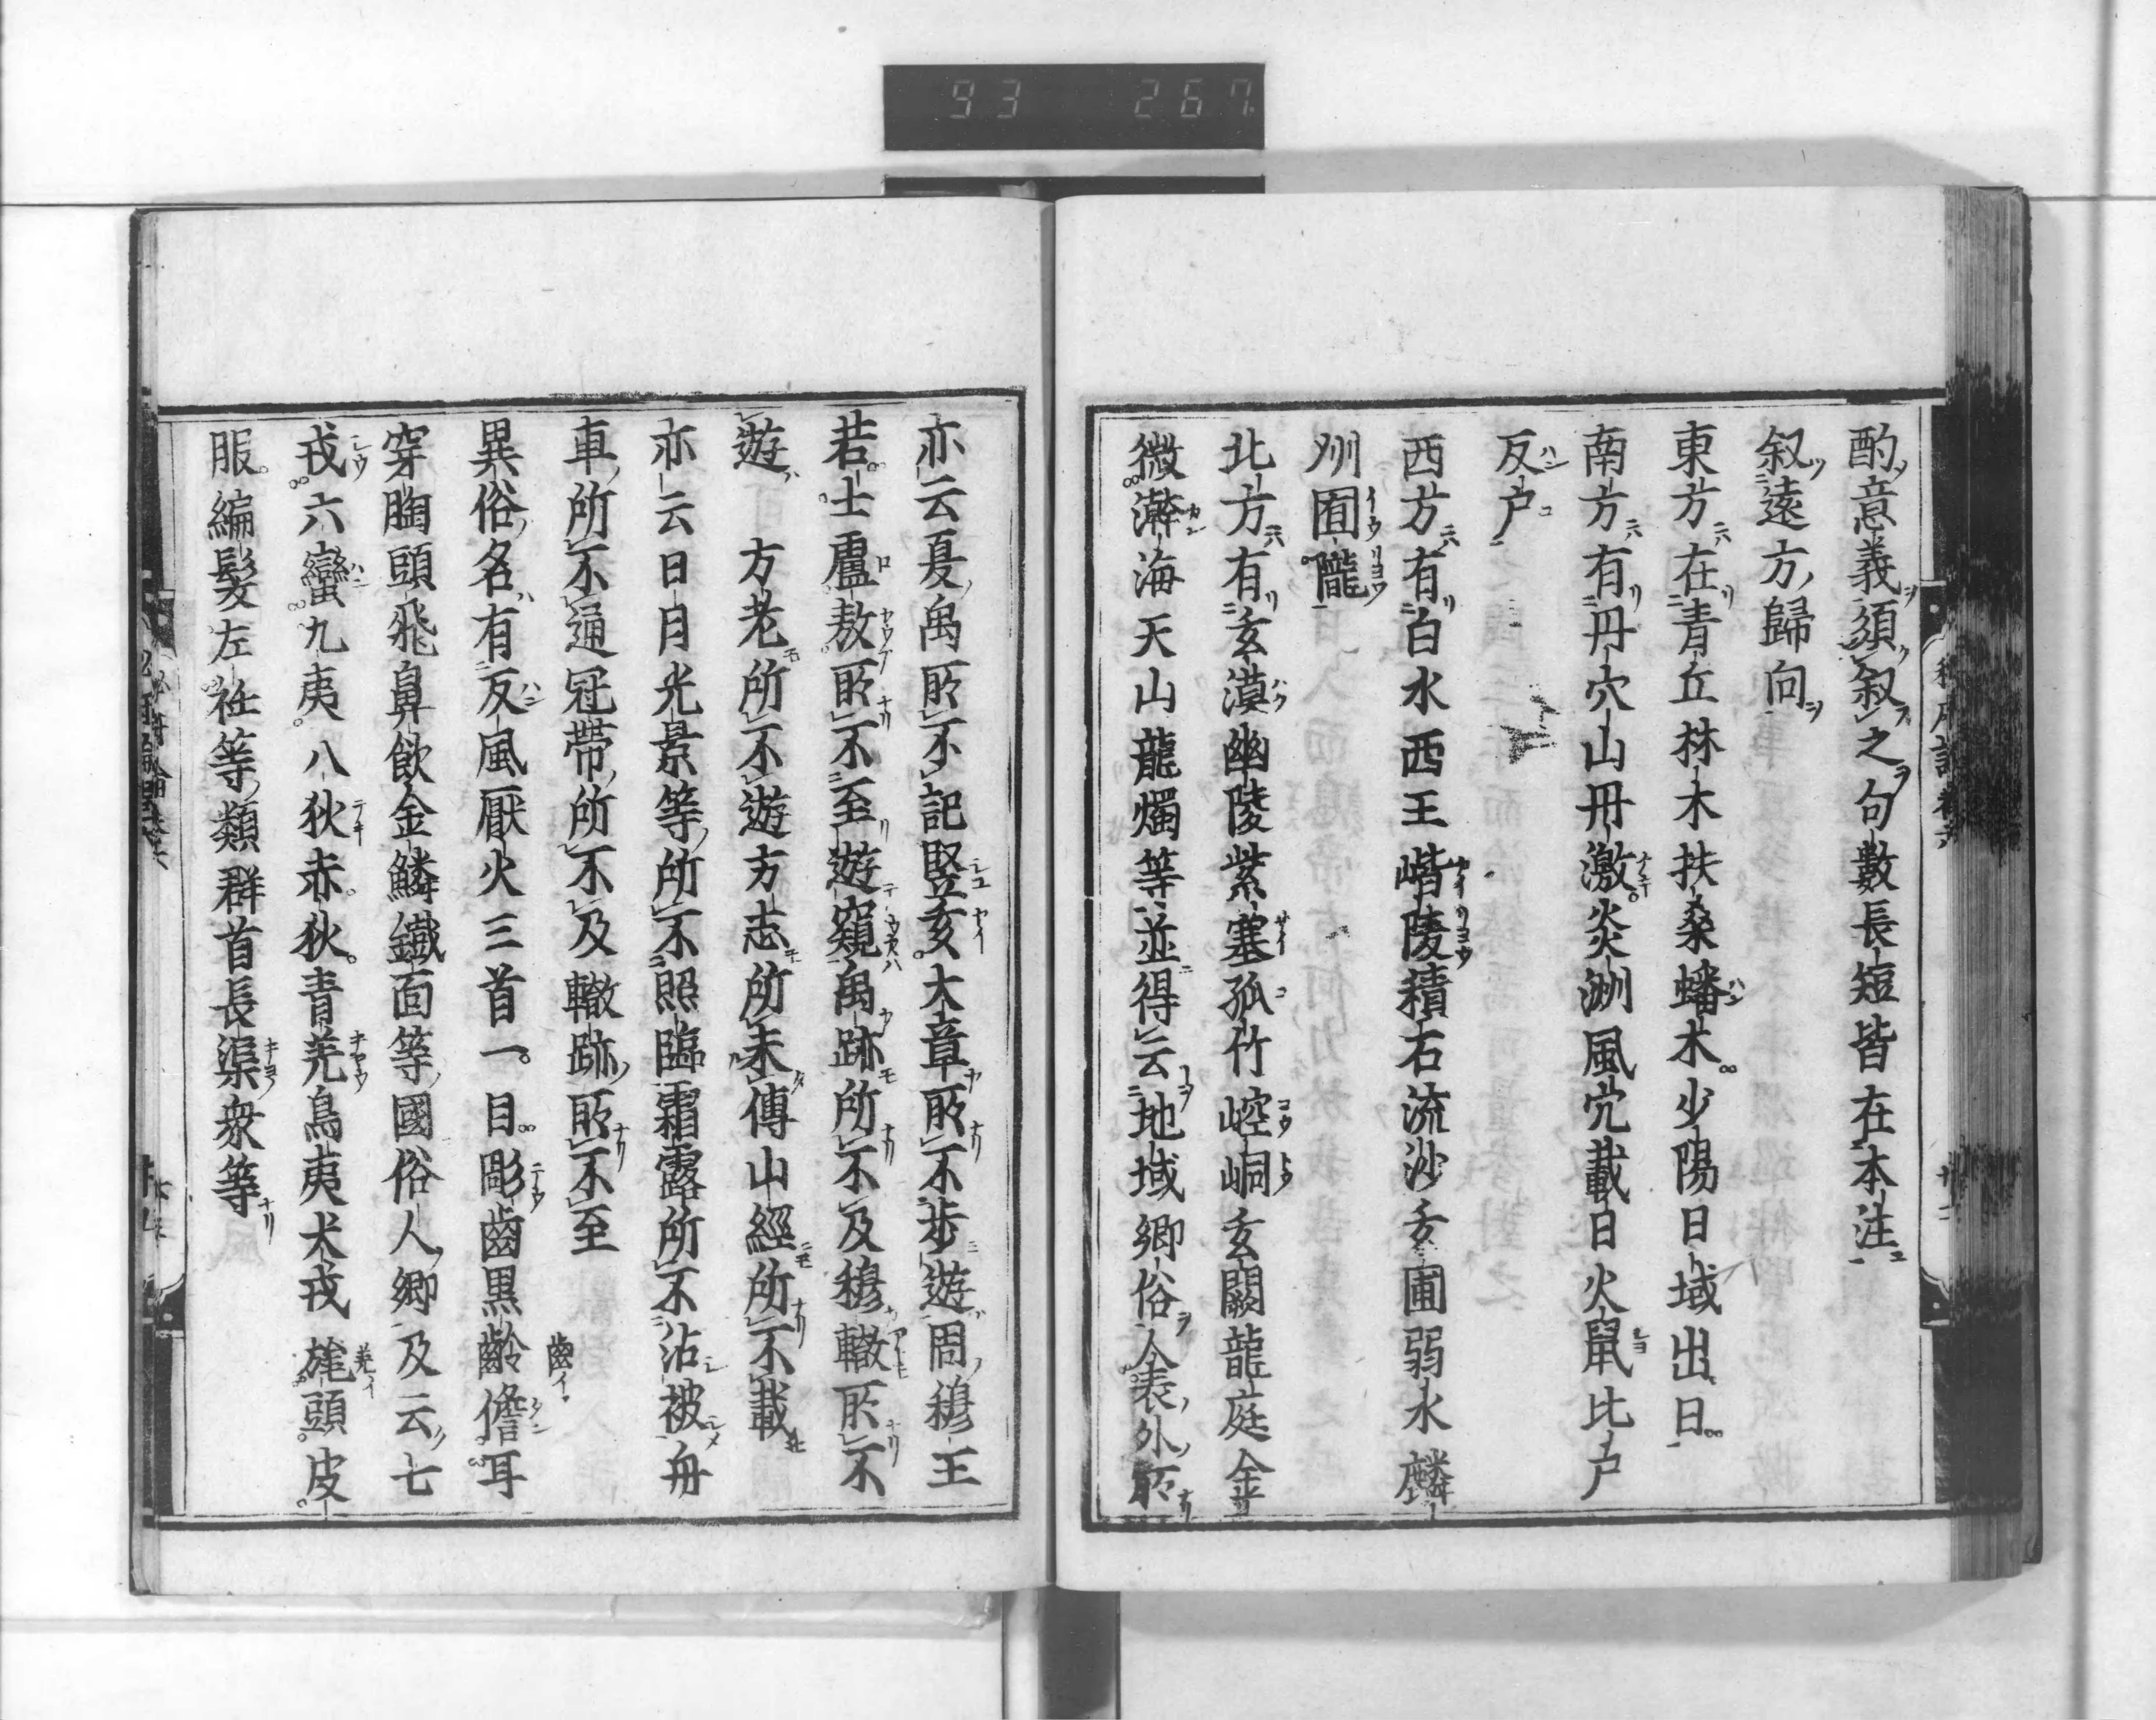 93 267
酌意義須叙之句數長短皆在本注
叙遠方歸向
東方在青丘林木扶桑蟠木少陽日域出日
南方有丹穴山丹激炎洲風穴載日火鼠比戸
反戸
西方有白水西王㟷陵積石流沙玄圃弱水麟
洲囿隴
北方有玄漠幽陵紫塞孤竹崆峒玄闕龍庭金
微瀚海天山龍燭等並得云地域郷俗人表外所
亦云夏禹所不記竪亥大章所不歩遊周穆王
若士盧敖所不至遊窺禹跡所不及穆轍所不
遊 方老所不遊方志所未傳山經所不載
亦云日月光景等所不照臨霜露所不沾被舟
車所不通冠帶所不及轍跡所不至
異俗名有反風厭火三首一目彫齒黒齡儋耳
齒イ
穿胸頭飛鼻飲金鱗鐵面等國俗人郷及云七
戎六蠻九夷八狄赤狄青羌鳥夷犬戎旄頭皮
服編髮左衽等類群首長渠衆等